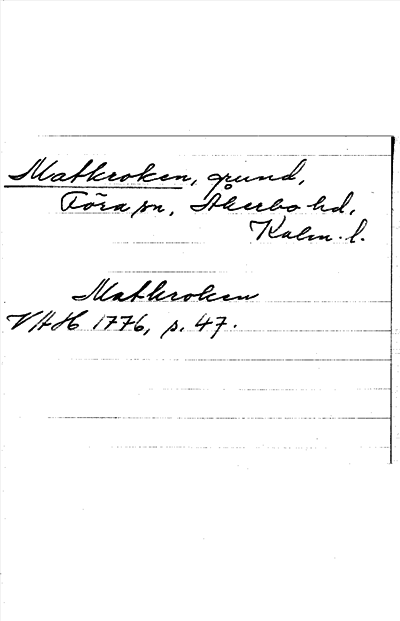 Matkroken, grund,
Föra sn, Åkerbo hd,
Kalm. l.
Matkroken
VAH 1776, s. 47.